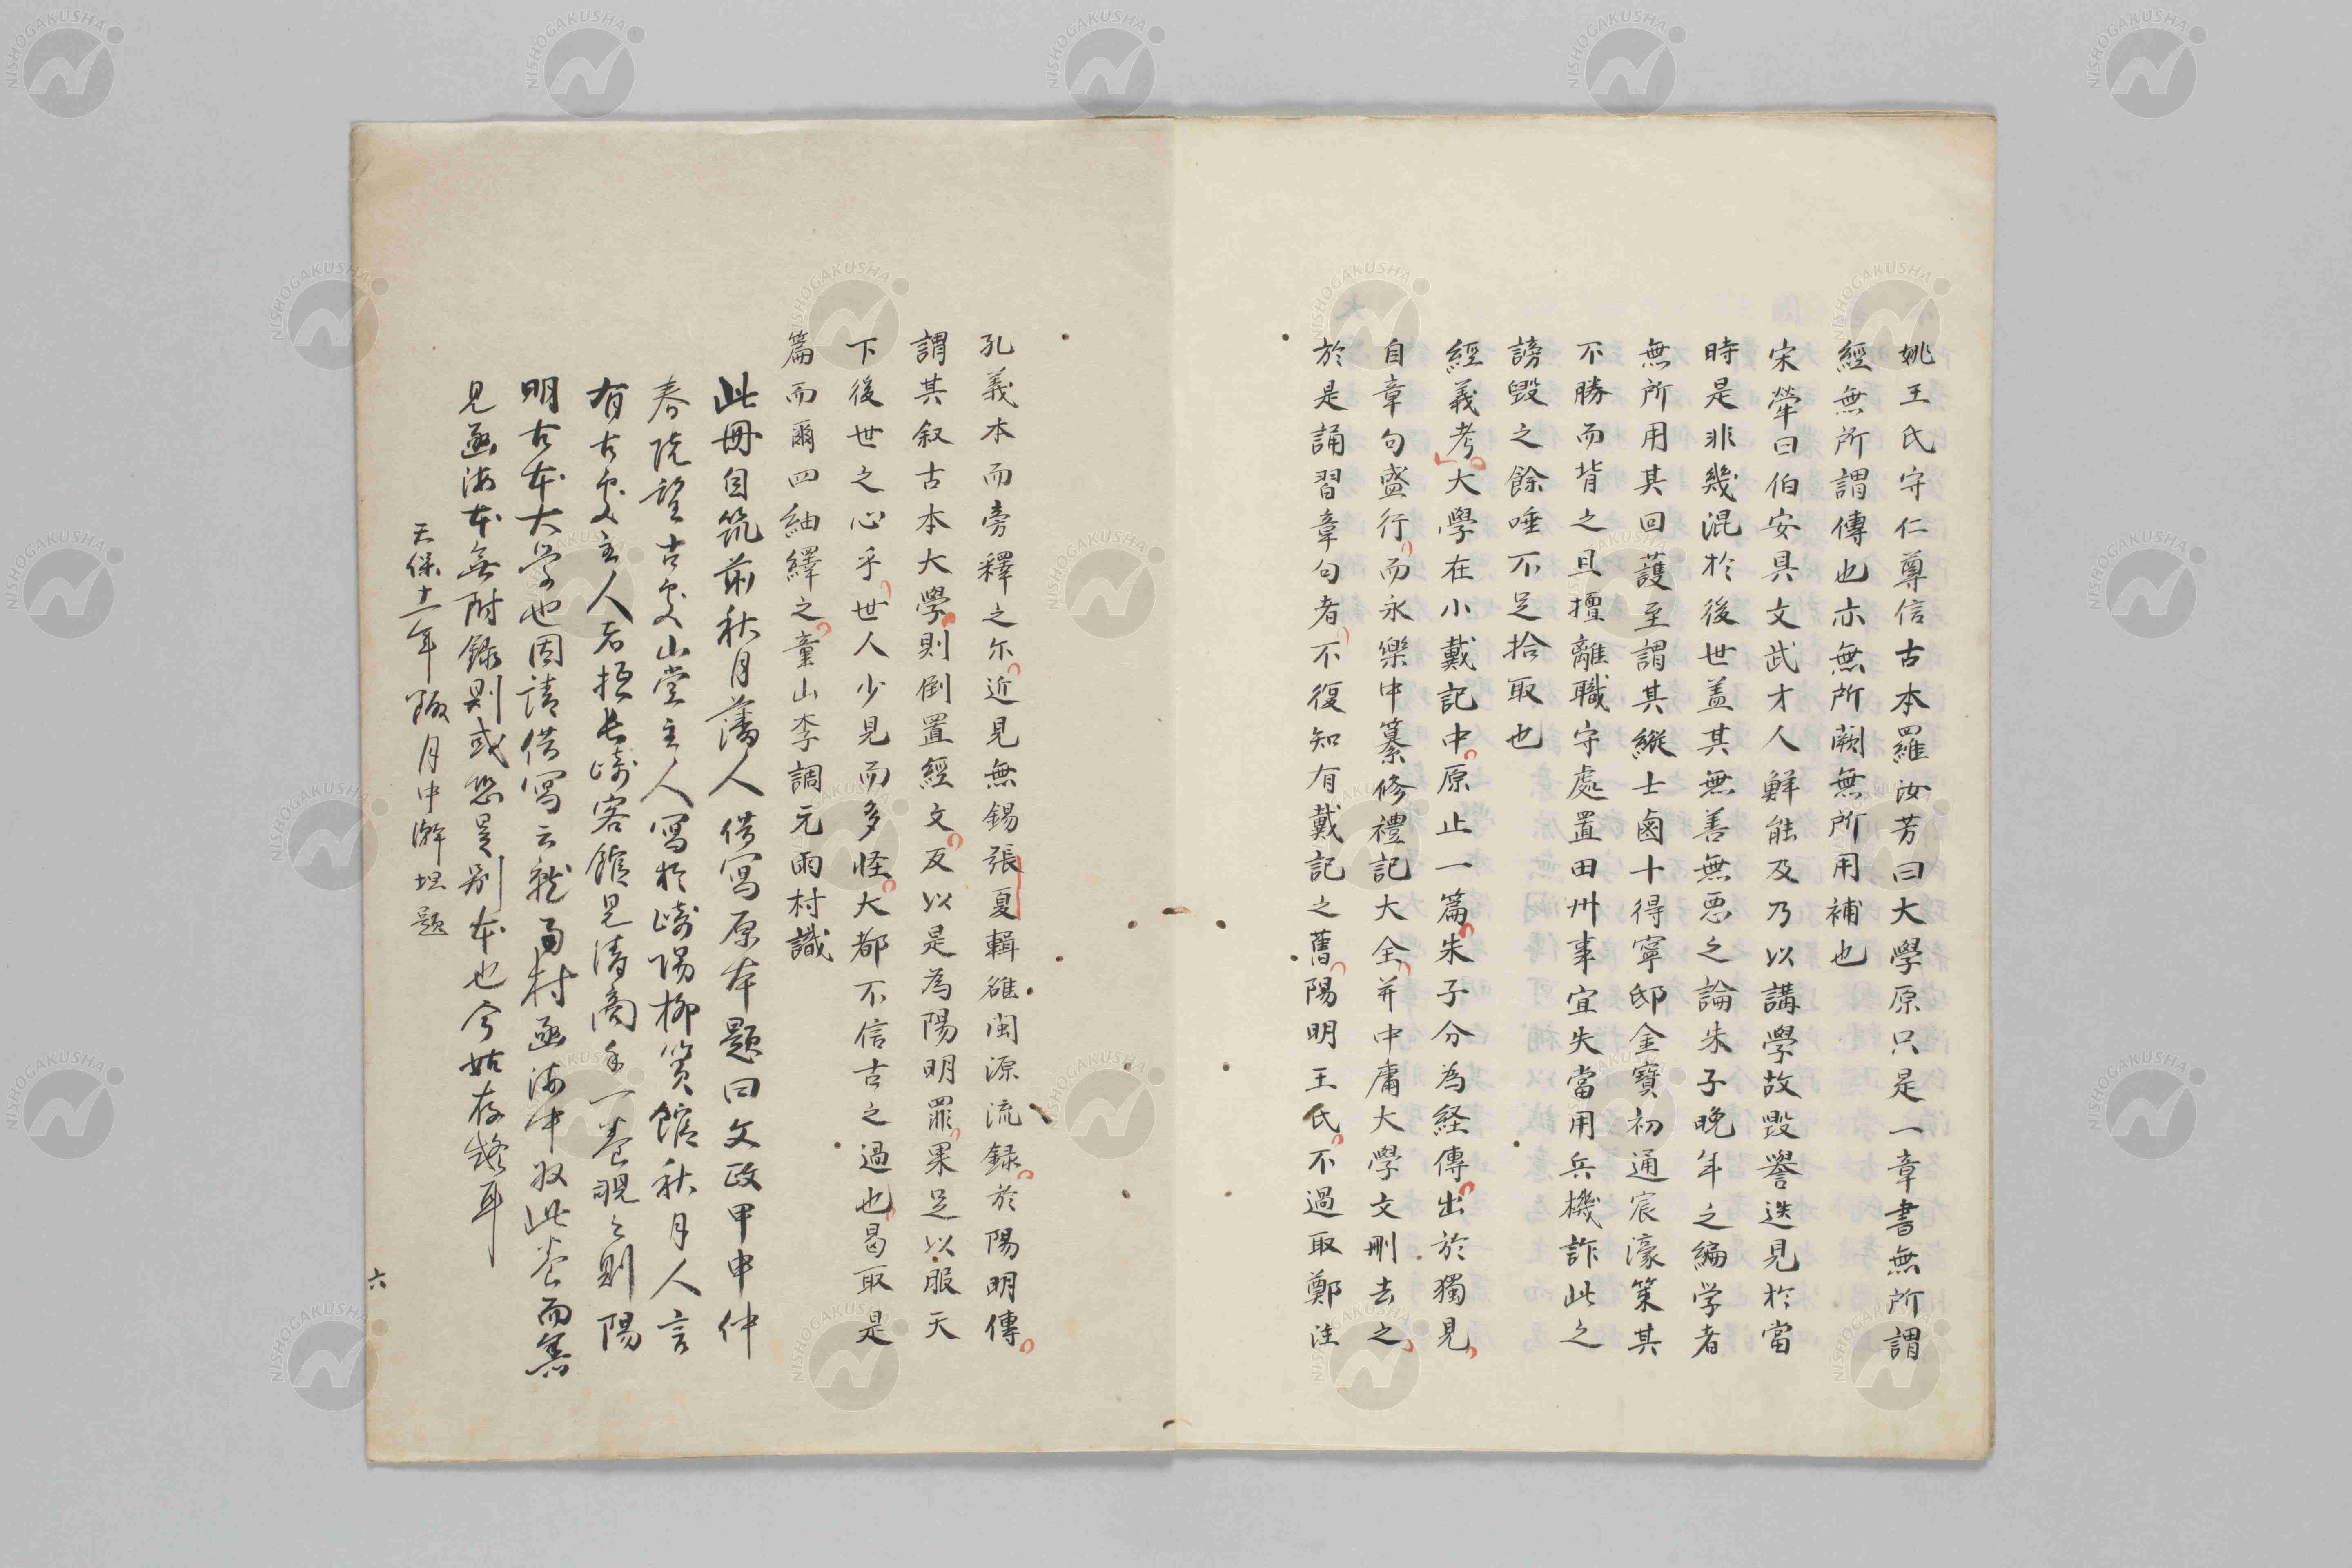 姚王氏守仁尊信古本羅汝芳曰大學原只是一章書無所謂
經無所謂傳也亦無所闕無所用補也
宋犖曰伯安具文武才人鮮能及乃以講學故毀譽迭見於當
時是非幾混於後世盖其無善無悪之論朱子晚年之編学者
無所用其回護至謂其縱士鹵十得寧邸金寶初通宸濠策其
不勝而背之且擅離職守處置田州事宜失當用兵機詐此之
謗毀之餘唾不足拾取也
經義考大學在小戴記中原止一篇朱子分為経傳出於獨見
自章句盛行而永樂中纂修禮記大全并中庸大學文刪去之
於是誦習章句者不復知有戴記之舊陽明王氏不過取鄭注
孔義本而旁釋之尓近見無錫張夏輯雒閩源流録於陽明傳
謂其叙古本大學則倒置經文反以是為陽明罪果足以服天
下後世之心乎世人少見而多怪大都不信古之過也曷取是
篇而爾四紬繹之童山李調元雨村識
此冊自筑前秋月藩人借寫原本題曰文政甲申仲
春院望古處山堂主人寫於崎陽柳簧館秋月人言
有古處主人者抵長崎客館見清商手一卷覗之則陽
明古本大学也因請借寫云就雨村函海中收此卷而舊
見函海本無附録則或恐是別本也今姑存疑耳
天保十一年陬月中澣坦題
六
NISHOGAKUSHA